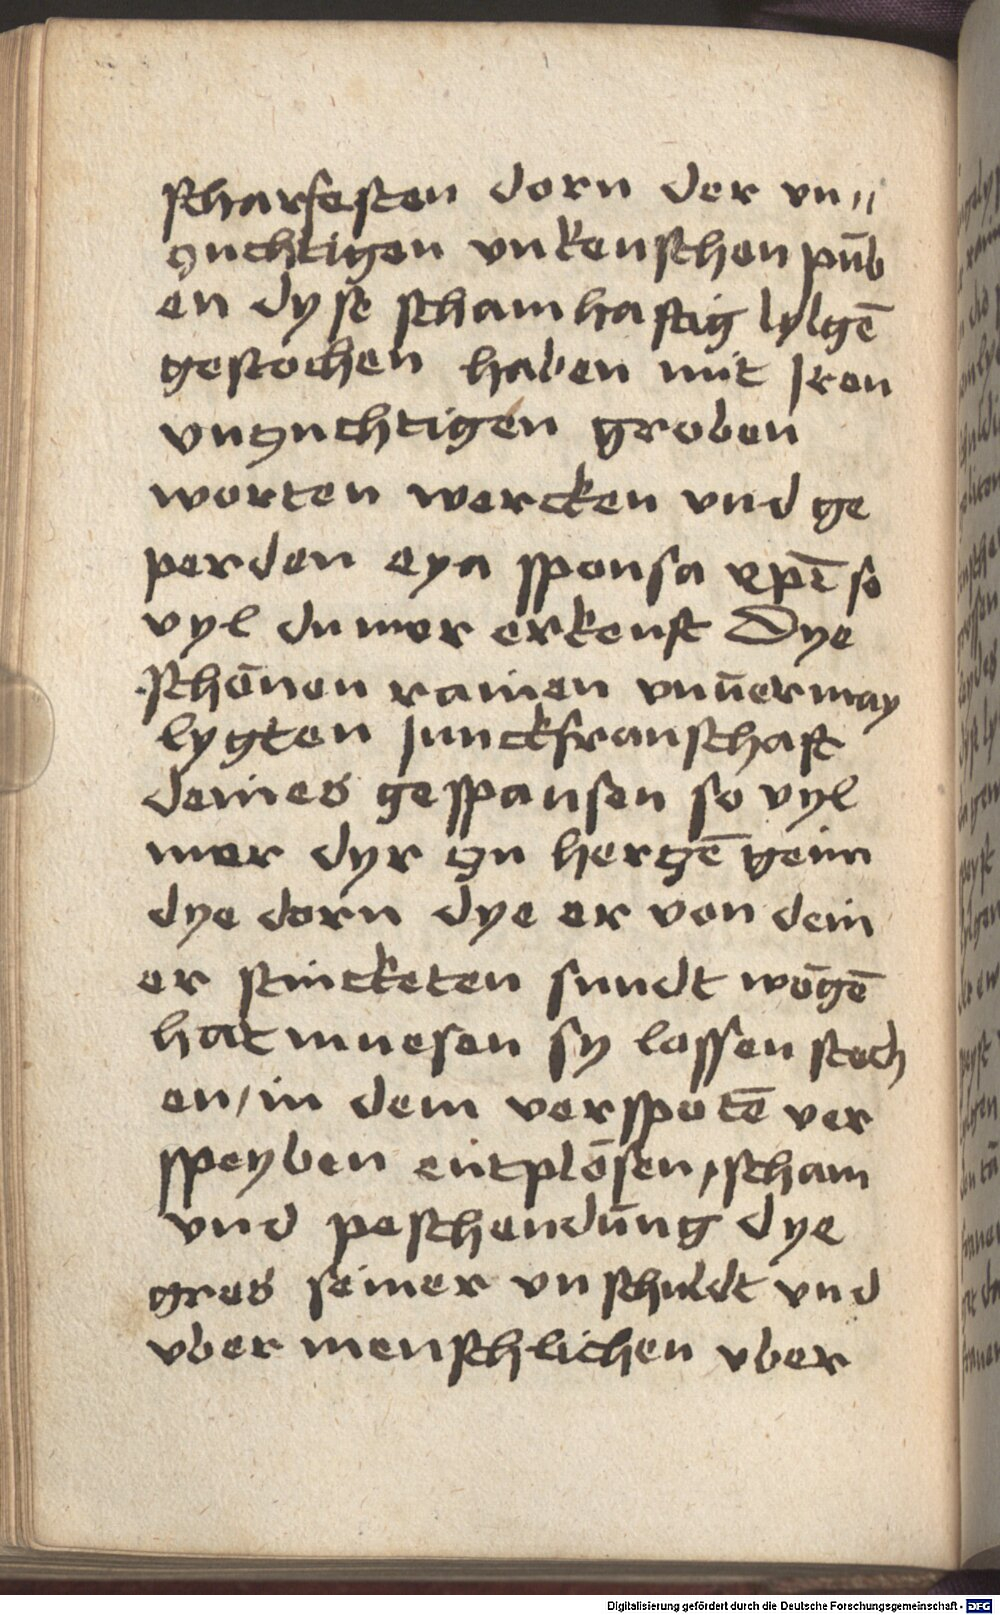 scharfesten dorn der vn〃
zuchtigen vnkeuschen pūb
en dyse schamhaftig lylgē
gestochen haben mit Jren
vnzuchtigen groben
worten wercken vnd ge
perden eya sponsa xpī so
vyl du mer erkenst Dye
schōnen rainen vnuermay
lygten Junckfrauschaft
deines gespansen so vyl
mer dyr zu herzē gein
dye dorn dye er von dein
er stincketen sundt wōgē
hat muesen sy lassen stech
en/in dem verspotē ver
speyben entplōsen/scham
vnd peschendūng dye
gres seiner vnschuldt vnd
vber menschlichen vber
Digitalisierung gefördert durch die Deutsche Forschungsgemeinschaft - DFG